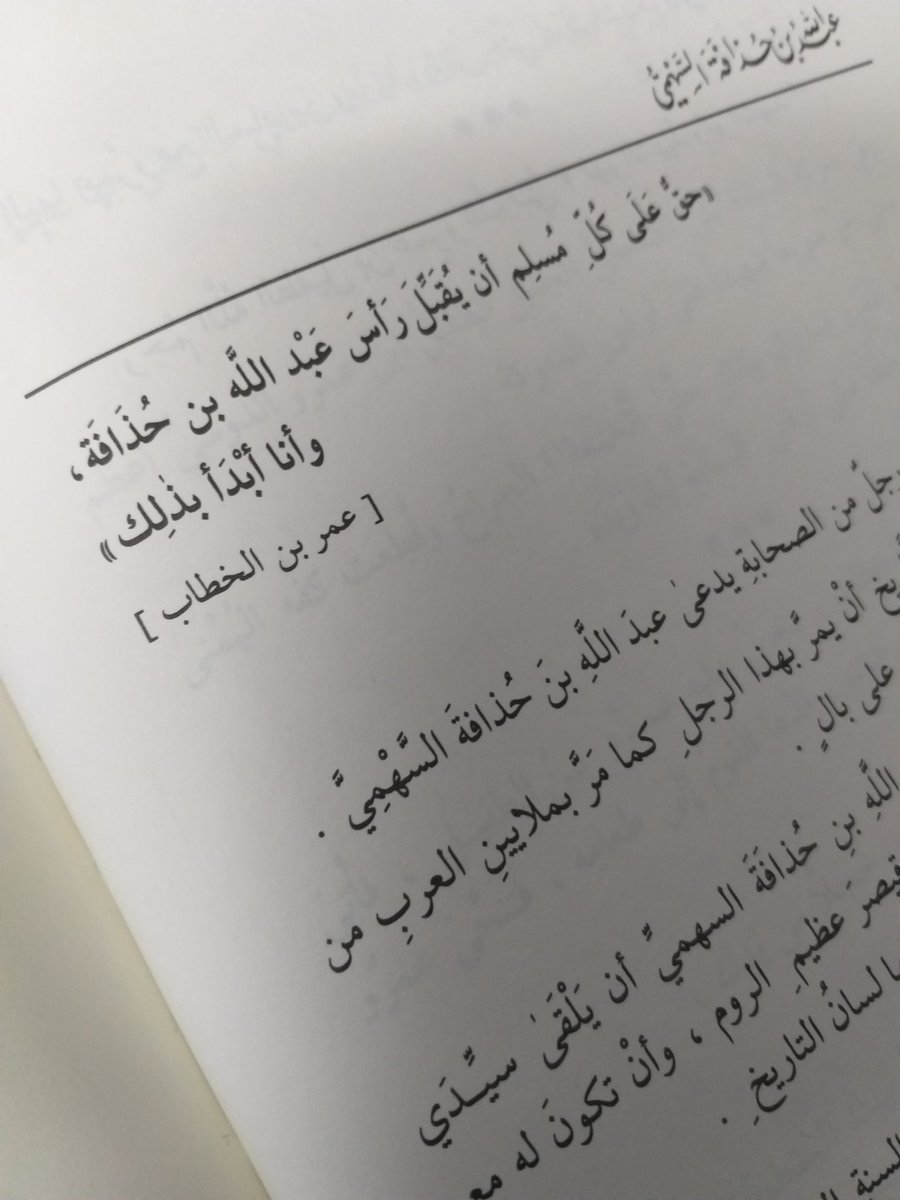 عبد الله بن حذافة السهمي
«حَقٌّ عَلَى كُلِّ مُسلِمٍ أن يُقبِّلَ رَأسَ عَبْد اللَّه بن حُذَافَة،
وأنا أبْدَأ بذٰلِك»
[ عمر بن الخطاب ]
رجلٌ من الصحابةِ يدعىٰ عبدَ اللَّهِ بنَ حُذافةَ السَّهْمِيَّ .
أنْ يمرَّ بهذا الرجلِ كما مَرَّ بملايينِ العربِ من
على بالٍ .
اللَّهِ بنِ حُذافَةَ السهميِّ أن يَلْقَىٰ سيِّدَي
قيصرَ عظيمِ الروم ، وأنْ تكونَ له مع
لسانُ التاريخِ .
السنة